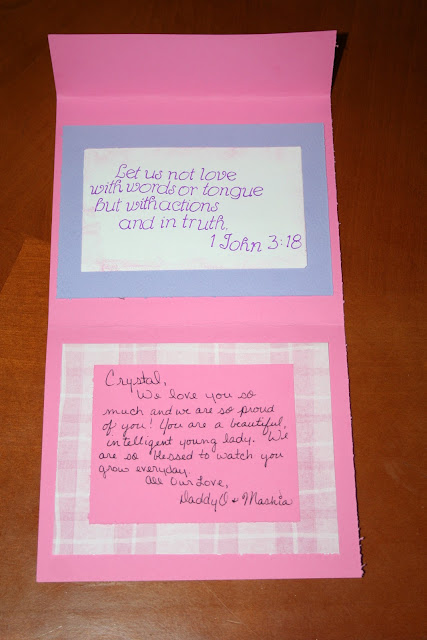 Let us not love
with words or tongue
but with actions
and in truth.
1 John 3:18
Crystal,
We love you so
much and we are so proud
of you! You are a beautiful,
intelligent young lady. We
are so blessed to watch you
grow everyday.
All Our Love,
DaddyO & Mashia